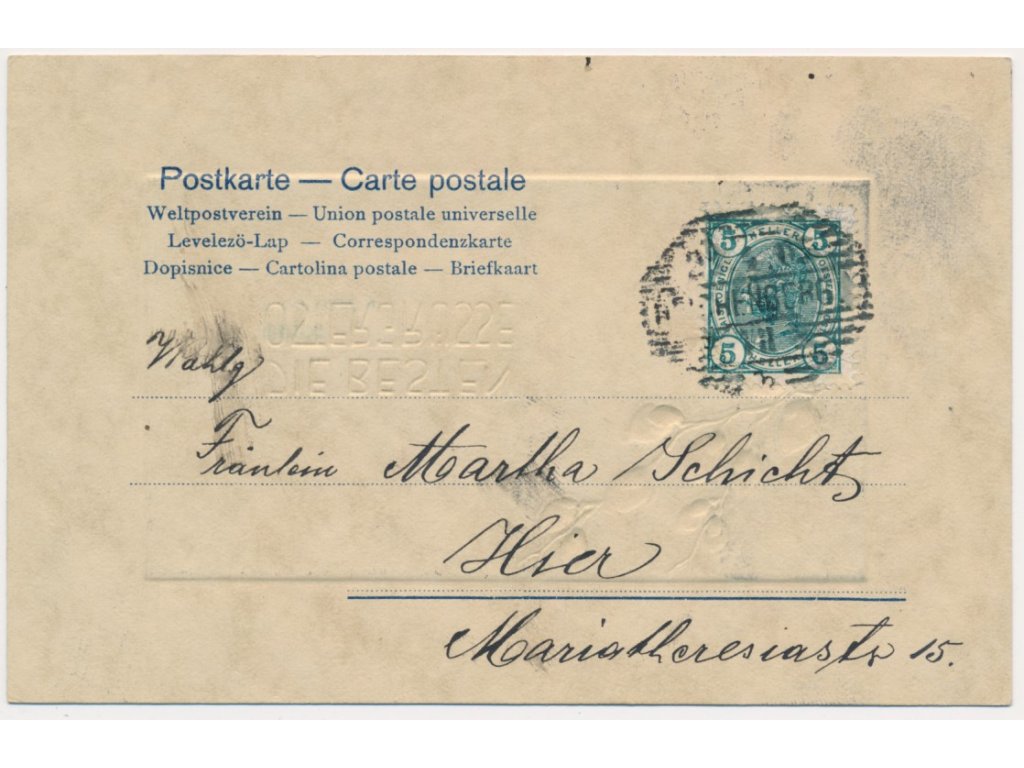 Postkarte — Carte postale
Weltpostverein — Union postale universelle
Levelezö-Lap — Correspondenzkarte
Dopisnice — Cartolina postale — Briefkaart
5 HELLER 5
5 HELLER 5
OSTER-GRÜSSE
DIE BESTEN
Wohlg
Fräulein Martha Schicht
Hier
Mariatheresiastr 15.